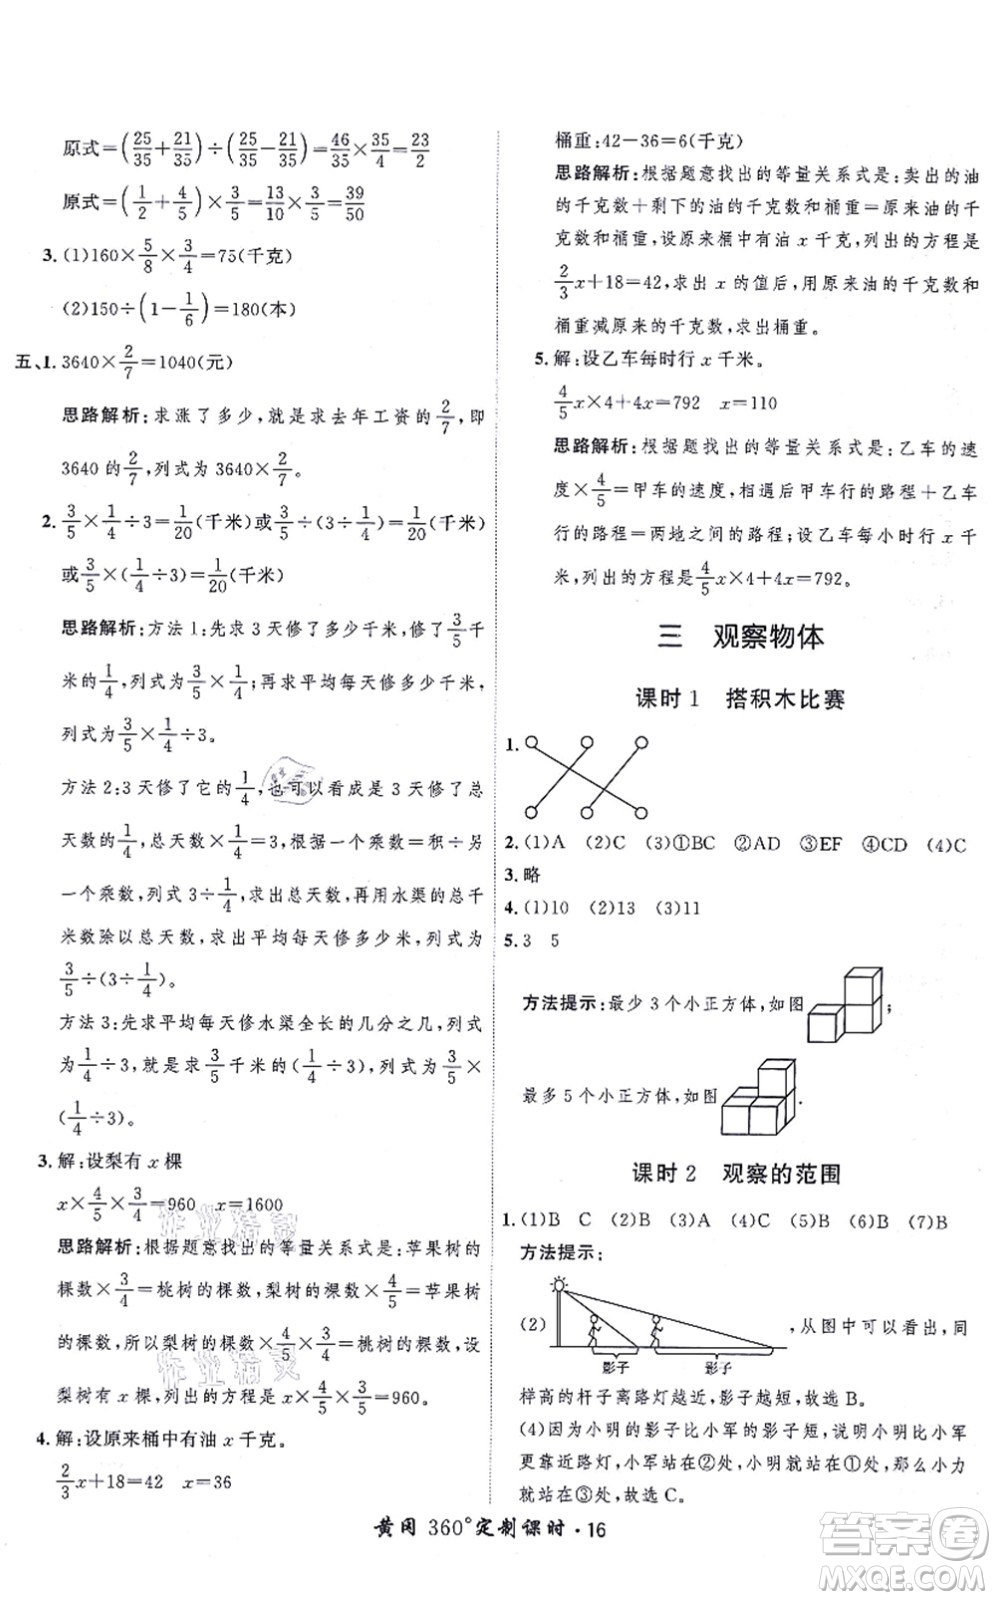 原式=(25/35+21/35)÷(25/35-21/35)=46/35×35/4=23/2
原式=(1/2+4/5)×3/5=13/10×3/5=39/50
3. (1)160×5/8×3/4=75(千克)
(2)150÷(1-1/6)=180(本)
五、1. 3640×2/7=1040(元)
思路解析:求涨了多少,就是求去年工资的2/7,即
3640的2/7,列式为3640×2/7。
2. 3/5×1/4÷3=1/20(千米)或3/5÷(3÷1/4)=1/20(千米)
或3/5×(1/4÷3)=1/20(千米)
思路解析:方法1:先求3天修了多少千米,用3/5千
米的1/4,列式为3/5×1/4;再求平均每天修多少千米,
列式为3/5×1/4÷3。
方法2:3天修了它的1/4,也可以看成是3天修了总
天数的1/4,总天数×1/4=3,根据一个乘数=积÷另
一个乘数,列式3÷1/4,求出总天数,再用水渠的总千
米数除以总天数,求出平均每天修多少米,列式为
3/5÷(3÷1/4)。
方法3:先求平均每天修水渠全长的几分之几,列式
为1/4÷3,就是求3/5千米的(1/4÷3),列式为3/5×
(1/4÷3)。
3. 解:设梨有x棵
x×4/5×3/4=960  x=1600
思路解析:根据题意找出的等量关系式是:苹果树的
棵数×3/4=桃树的棵数,梨树的棵数×4/5=苹果树
的棵数,所以梨树的棵数×4/5×3/4=桃树的棵数,设
梨树有x棵,列出的方程是x×4/5×3/4=960。
4. 解:设原来桶中有油x千克。
2/3x+18=42  x=36
桶重:42-36=6(千克)
思路解析:根据题意找出的等量关系式是:卖出的油
的千克数+剩下的油的千克数和桶重=原来油的千
克数和桶重,设原来桶中有油x千克,列出的方程是
2/3x+18=42,求出x的值后,用原来油的千克数和
桶重减原来的千克数,求出桶重。
5. 解:设乙车每时行x千米。
4/5x×4+4x=792  x=110
思路解析:根据题找出的等量关系式是:乙车的速
度×4/5=甲车的速度,相遇后甲车行的路程+乙车
行的路程=两地之间的路程;设乙车每小时行x千
米,列出的方程是4/5x×4+4x=792。
三 观察物体
课时1 搭积木比赛
1.
2. (1)A (2)C (3)①BC ②AD ③EF ④CD (4)C
3. 略
4. (1)10 (2)13 (3)11
5. 3 5
方法提示:最少3个小正方体,如图 ;
最多5个小正方体,如图 .
课时2 观察的范围
1. (1)B C (2)B (3)A (4)C (5)B (6)B (7)B
方法提示:
(2) ,从图中可以看出,同
影子 影子
样高的杆子离路灯越近,影子越短,故选B。
(4)因为小明的影子比小军的影子短,所以小明
更靠近路灯,小军站在②处,小明站在①处,小力
就站在③处,故选C。
黄冈360°定制课时·16
作业精灵
作业精灵
答案圈
MXQE.COM